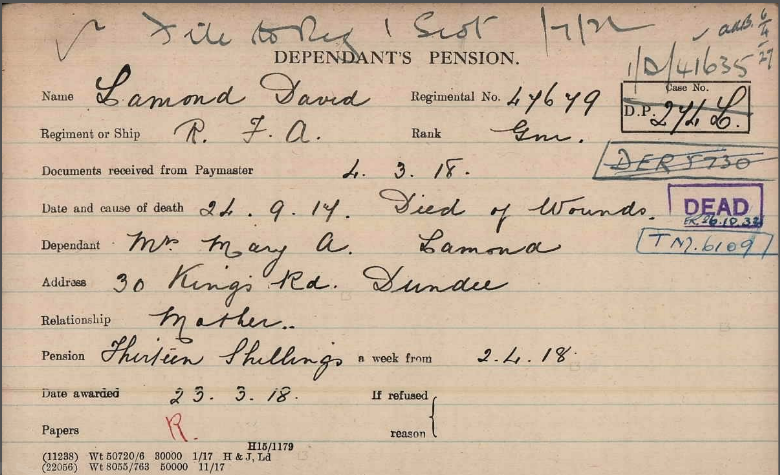 File to Reg 1 Scot 1/7/22
addl. 6/4/27
DEPENDANT'S PENSION.
1/D/41635
Name Lamond David Regimental No. 47679
Case No.
D.P. 274 L.
Regiment or Ship R. F. A. Rank Gnr.
DER 5730
Documents received from Paymaster 4. 3. 18.
Date and cause of death 24. 9. 17. Died of Wounds.
DEAD
6.10.32
Dependant Mrs Mary A. Lamond
TM.6109
Address 30 Kings Rd. Dundee
Relationship Mother..
Pension Thirteen Shillings a week from 2.4.18.
Date awarded 23. 3. 18. If refused
Papers R. reason
H15/1179
(11238) Wt 50720/6 30000 1/17 H & J, Ld
(22056) Wt 8055/763 50000 11/17